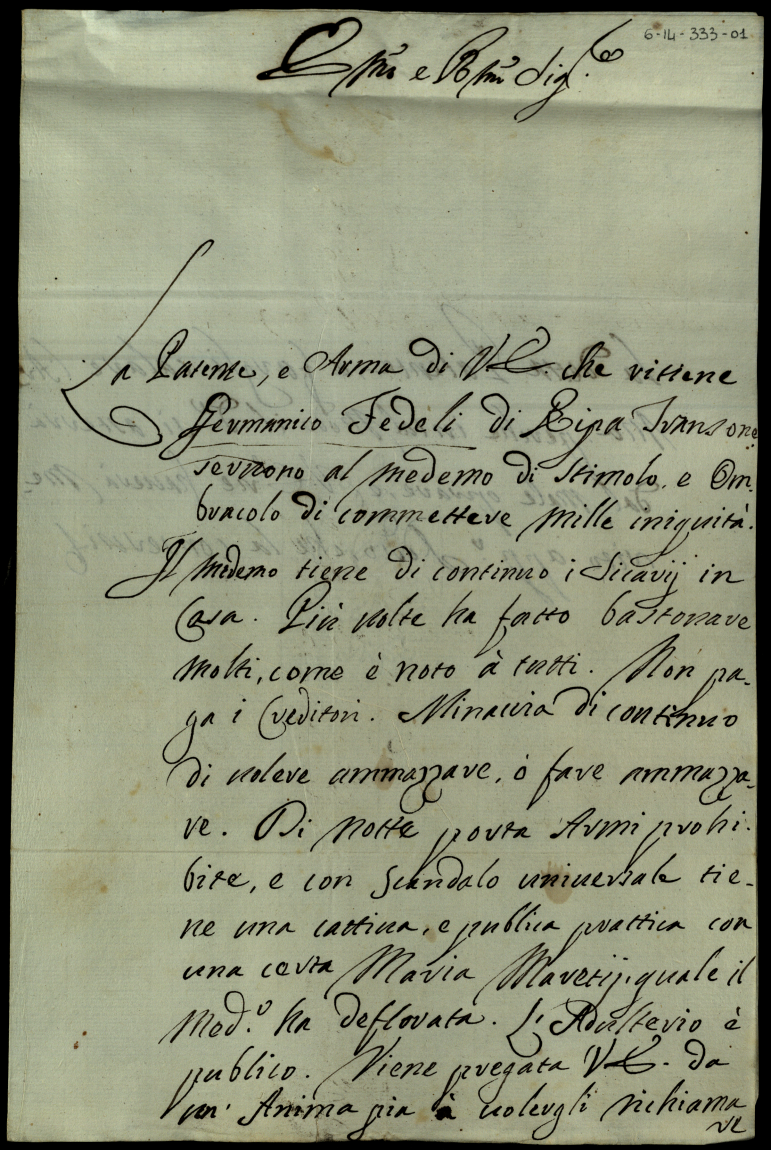 6-14-333-01
Emo e Rmo Sig.re
La Patente, e Arma di V.E. che ritiene
Germanico Fedeli di Ripa Transone
servono al medemo di stimolo, e Om-
bracolo di commettere mille iniquità.
Il medemo tiene di continuo i Sicarij in
Casa. Più volte ha fatto bastonare
molti, come è noto à tutti. Non pa-
ga i Creditori. Minaccia di continuo
di volere ammazzare, ò fare ammazza-
re. Di notte porta Armi prohi-
bite, e con scandalo universale tie-
ne una cattiva, e publica prattica con
una certa Maria quale il
Med.o ha deflorata. L'Adulterio è
publico. Viene pregata V.E. da
un' Anima pia à volergli richiama
re